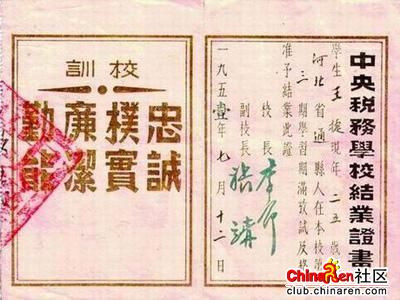 中央税務學校結業證書
學生王捷現年二五歲
河北省通縣人在本校第
三期學習期滿攷試及格
准予結業此證
校長 李
副校長 張
一九五壹年七月十二日
校訓
忠誠
樸實
廉潔
勤能
ChinaRen社区
club.chinaren.com